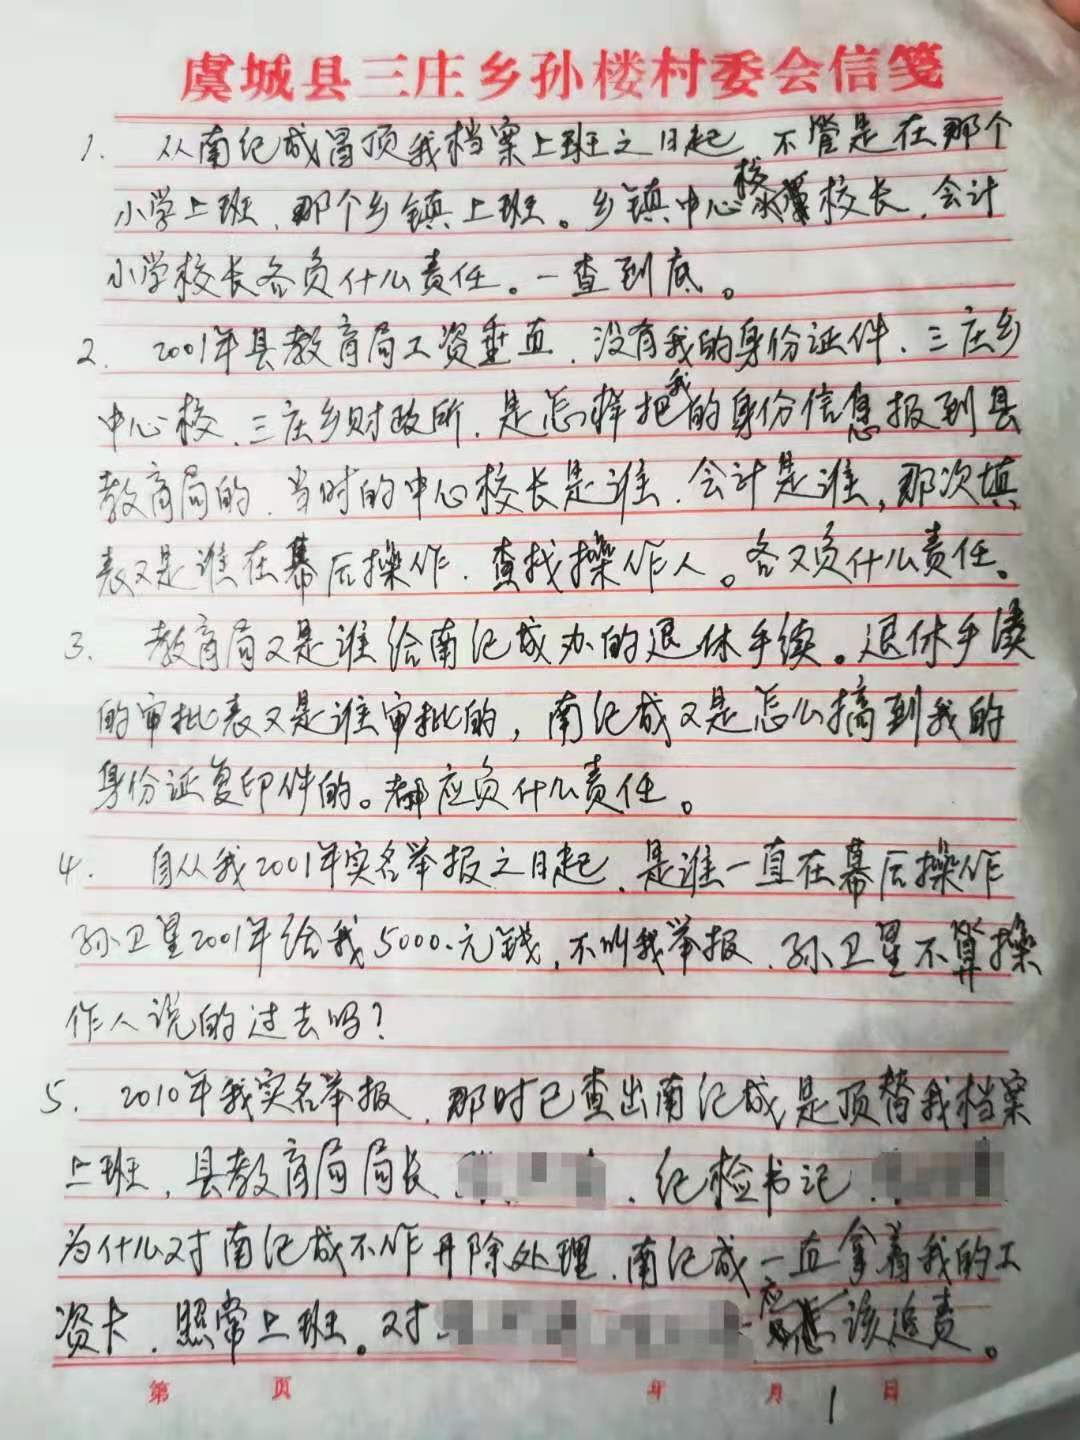 虞城县三庄乡孙楼村委会信笺
1. 从南纪成冒顶我档案上班之日起，不管是在那个
小学上班，那个乡镇上班。乡镇中心校校长，会计
小学校长各负什么责任。一查到底。
2. 2001年县教育局工资垂直，没有我的身份证件、三庄乡
中心校、三庄乡财政所，是怎样把我的身份信息报到县
教育局的，当时的中心校长是谁、会计是谁，那次填
表又是谁在幕后操作，查找操作人。各又负什么责任。
3. 教育局又是谁给南纪成办的退休手续。退休手续
的审批表又是谁审批的，南纪成又是怎么搞到我的
身份证复印件的。都应负什么责任。
4. 自从我2001年实名举报之日起，是谁一直在幕后操作
孙卫星2001年给我5000.元钱，不叫我举报，孙卫星不算操
作人说的过去吗？
5. 2010年我实名举报，那时已查出南纪成是顶替我档案
上班，县教育局局长，纪检书记
为什么对南纪成不作开除处理，南纪成一直拿着我的工
资卡，照常上班。对应该追责。
第 页 年 月 日
1